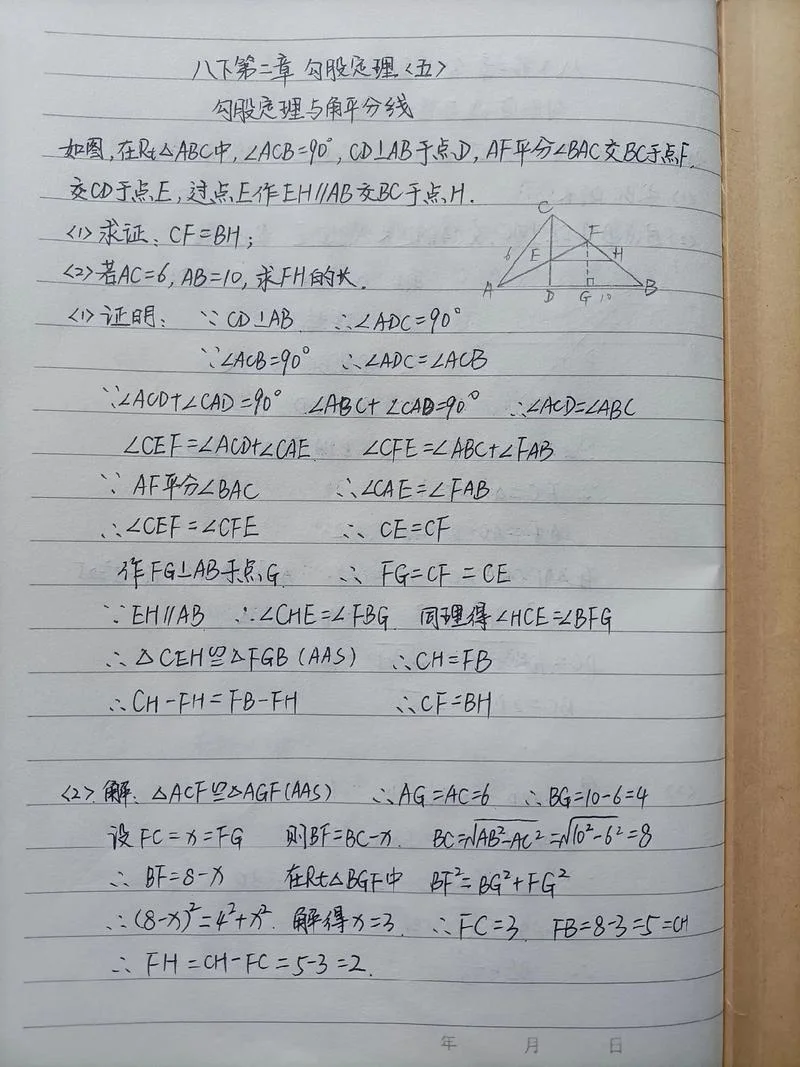 八下第二章 勾股定理〈五〉
勾股定理与角平分线
如图,在Rt△ABC中,∠ACB=90°,CD⊥AB于点D,AF平分∠BAC交BC于点F,
交CD于点E,过点E作EH∥AB交BC于点H.
〈1〉求证:CF=BH;
〈2〉若AC=6,AB=10,求FH的长.
C
F
6 E H
A D G 10 B
〈1〉证明: ∵ CD⊥AB ∴∠ADC=90°
∵∠ACB=90° ∴∠ADC=∠ACB
∵∠ACD+∠CAD=90° ∠ABC+∠CAD=90° ∴∠ACD=∠ABC
∠CEF=∠ACD+∠CAE ∠CFE=∠ABC+∠FAB
∵ AF平分∠BAC ∴∠CAE=∠FAB
∴∠CEF=∠CFE ∴ CE=CF
作FG⊥AB于点G ∴ FG=CF=CE
∵EH∥AB ∴∠CHE=∠FBG 同理得∠HCE=∠BFG
∴ △CEH≌△FGB (AAS) ∴CH=FB
∴CH-FH=FB-FH ∴CF=BH
〈2〉解: △ACF≌△AGF(AAS) ∴AG=AC=6 ∴BG=10-6=4
设FC=x=FG 则BF=BC-x BC=√AB²-AC²=√10²-6²=8
∴ BF=8-x 在Rt△BGF中 BF²=BG²+FG²
∴(8-x)²=4²+x² 解得x=3 ∴FC=3 FB=8-3=5=CH
∴ FH=CH-FC=5-3=2.
年 月 日